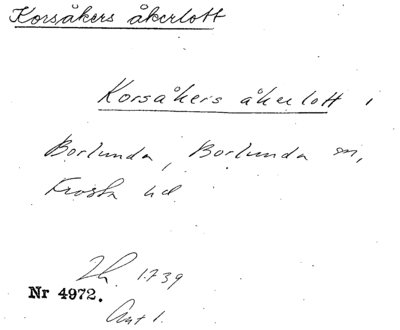 Korsåkers åkerlott
Korsåkers åkerlott,
Borlunda, Borlunda sn,
Frosta hd.
Jh. 1739
Nr 4972.
Akt 1.